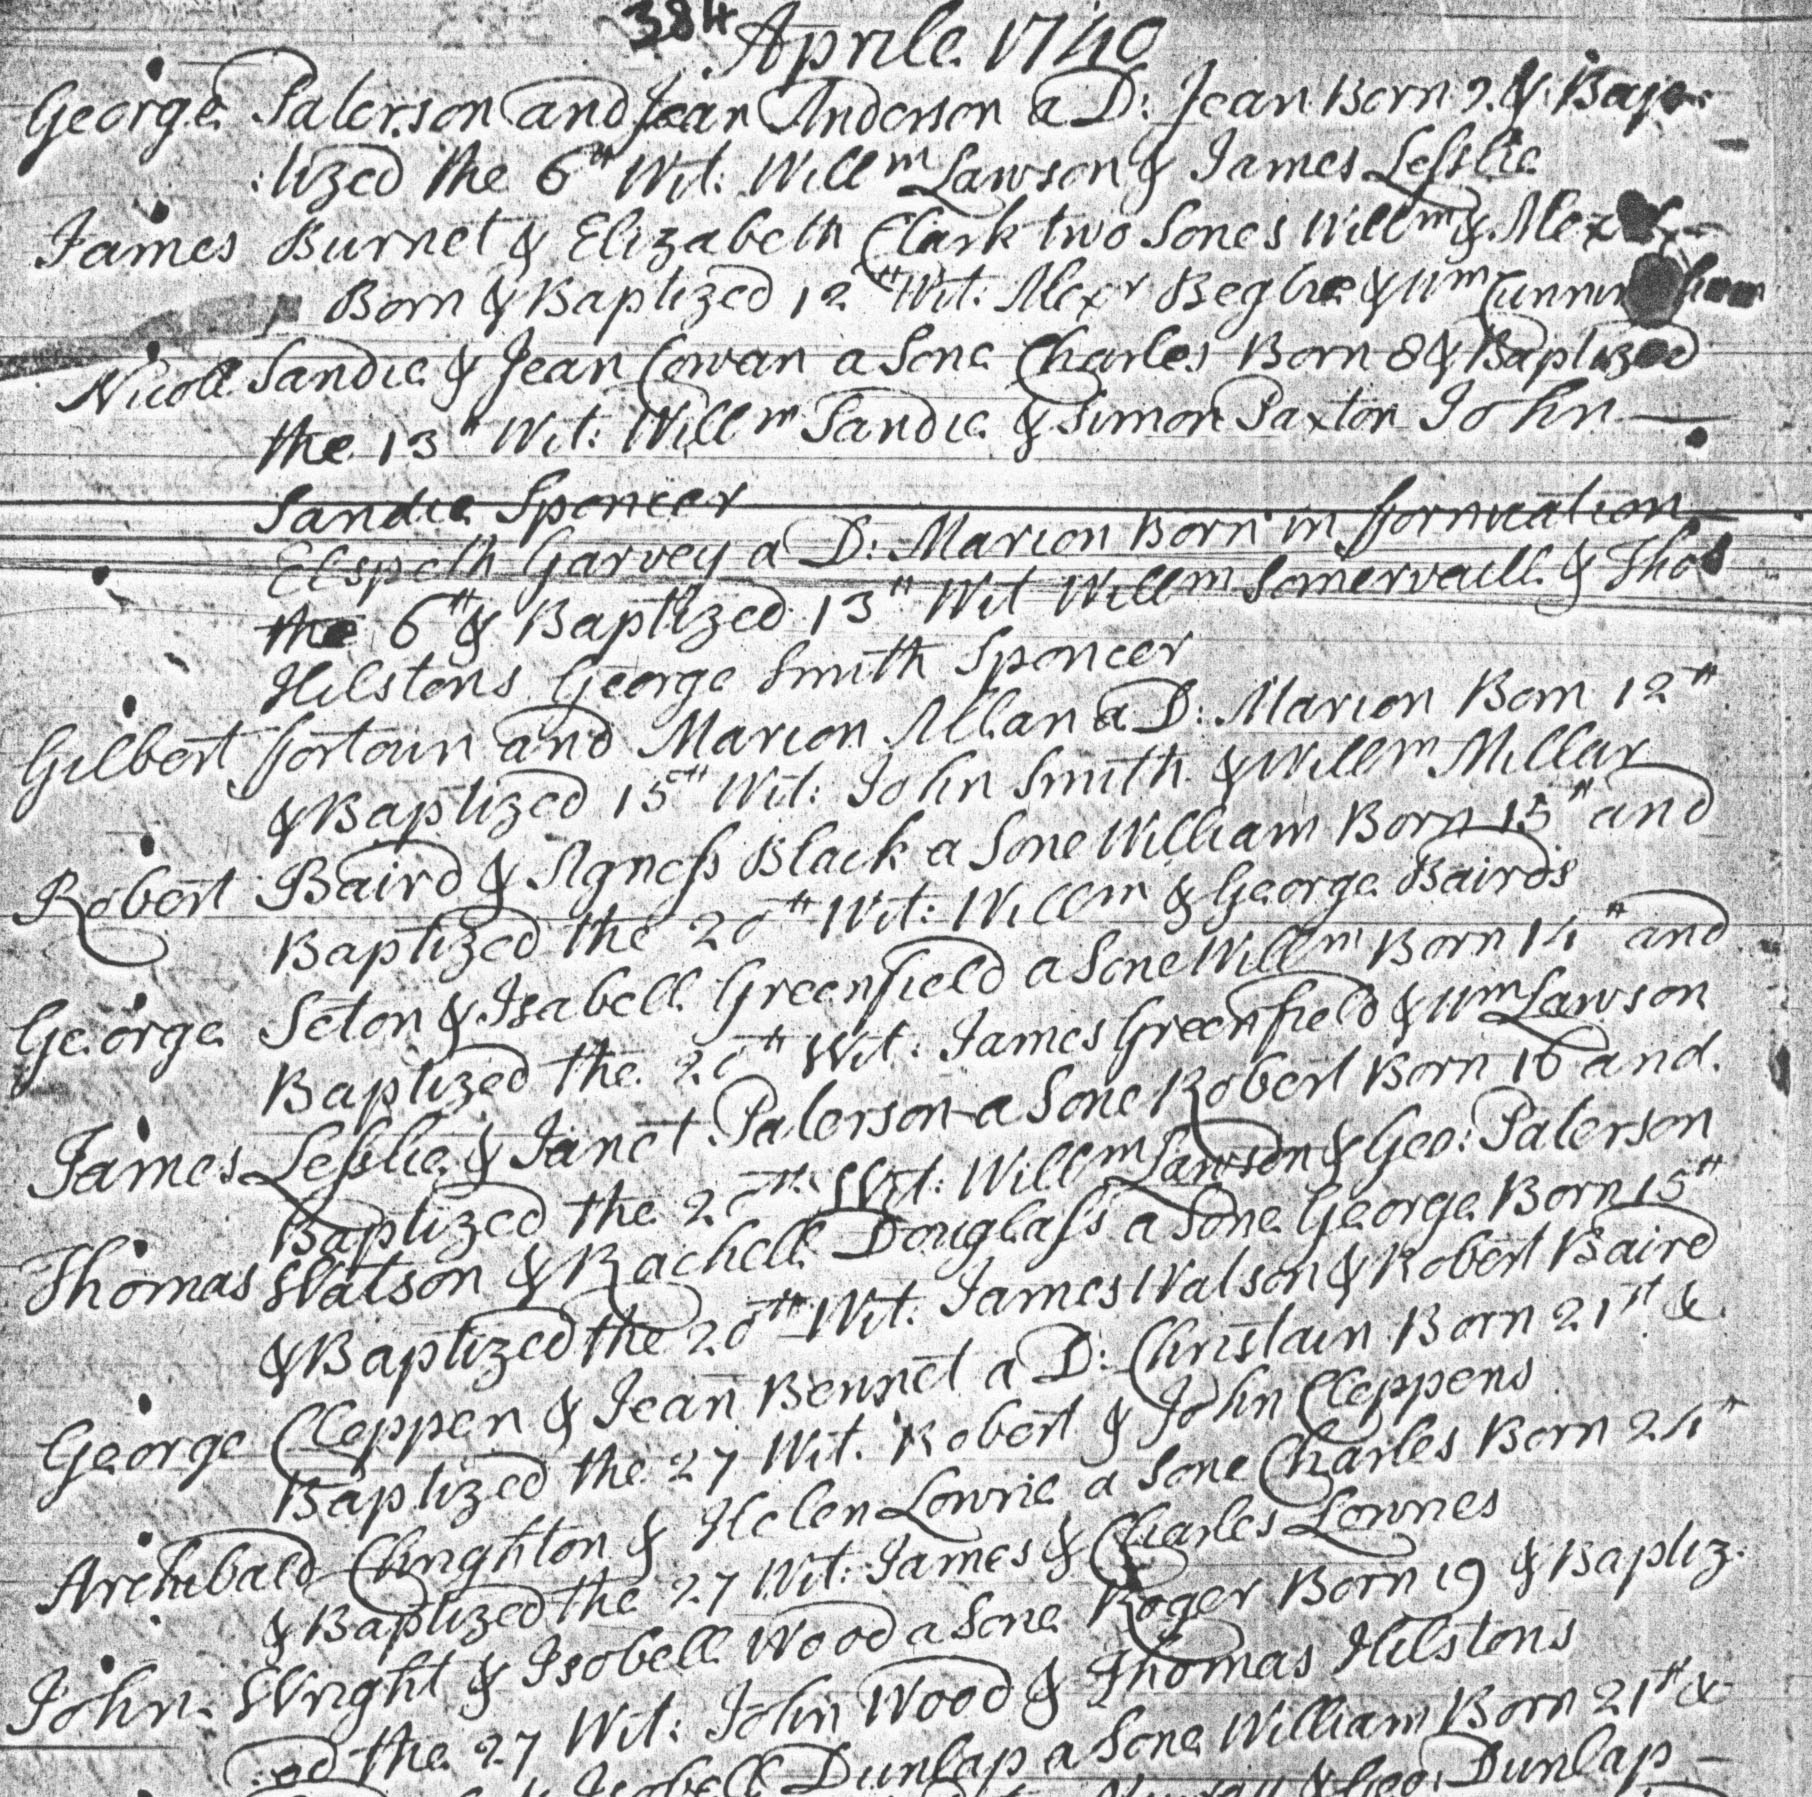 384 Aprile 1740
George Paterson and Jean Anderson a D: Jean Born 2. & Bap-
:tized the 6th Wit: Willm Lawson & James Leslie
James Burnet & Elizabeth Clark two Sones Willm & Alexr
Born & Baptized 12th Wit: Alexr Begbie & Wm
Nicoll Sandie & Jean Cowan a Sone Charles Born 8 & Baptized
the 13th Wit: Willm Sandie & Simon Paxton John —
Sandie Sponcer
Elspeth Garvey a D: Marion Born in fornication
the 6th & Baptized 13th Wit Willm Somervaill & Thos
Hilstons George Smith Sponcer
Gilbert fortoun and Marion Allan a D: Marion Born 12th
& Baptized 15th Wit: John Smith & Willm Millar
Robert Baird & Agness Black a Sone William Born 15th and
Baptized the 20th Wit: Willm & George Bairds
George Seton & Isabell Greenfield a Sone Willm Born 14th and
Baptized the 20th Wit: James Greenfield & Wm Lawson
James Leslie & Janet Paterson a Sone Robert Born 16 and.
Baptized the 20th Wit: Willm Lawson & Geo: Paterson
Thomas Watson & Rachell Douglass a Sone George Born 15th
& Baptized the 20th Wit: James Watson & Robert Baird
George Cleppen & Jean Bennet a D: Christain Born 21st &
Baptized the 27 Wit. Robert & John Cleppens
Archibald Chrighton & Helen Lowrie a Sone Charles Born 24th
& Baptized the 27 Wit: James & Charles Lowries
John Wright & Isobell Wood a Sone Roger Born 19 & Baptiz:
:ed the 27 Wit: John Wood & Thomas Hilstons
Isobell Dunlap a Sone William Born 21st &
& Geo: Dunlap —